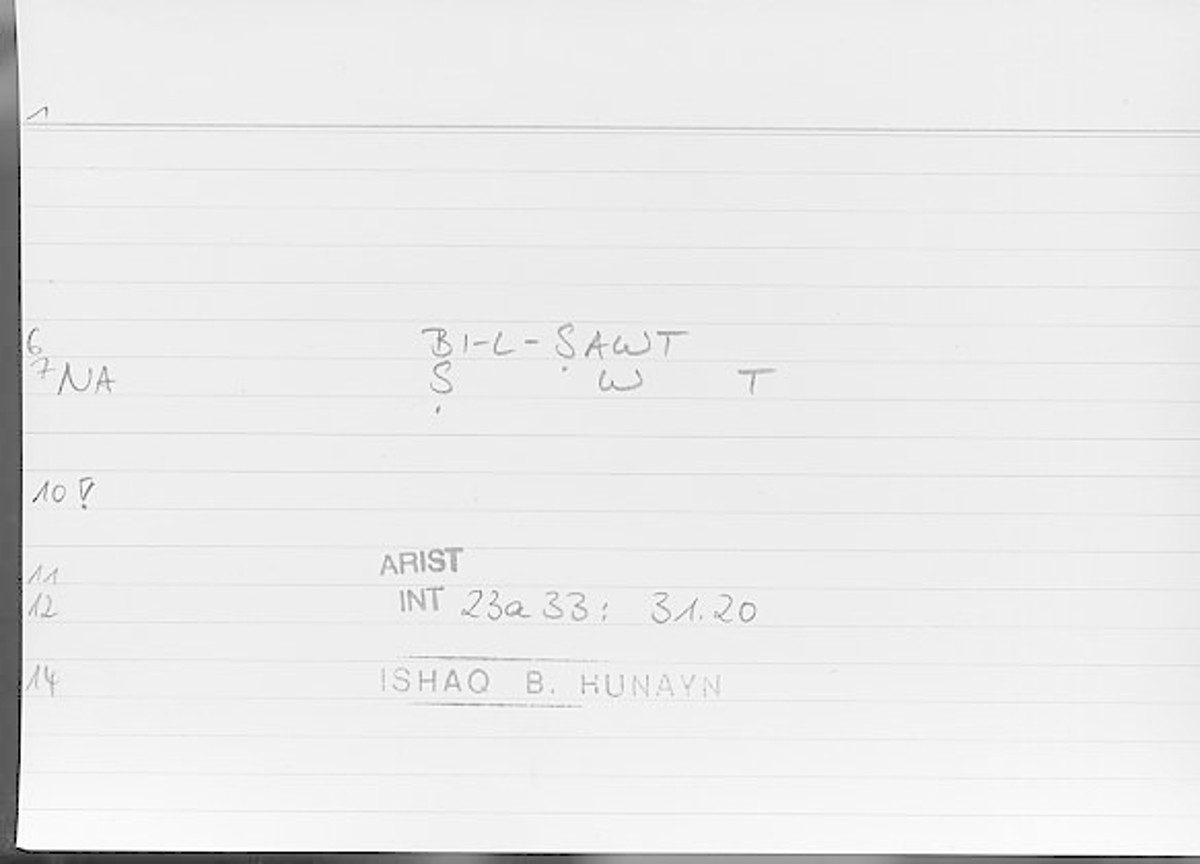 1
6 BI-L-ṢAWT
7 NA Ṣ W T
10 !
11 ARIST
12 INT 23a 33: 31.20
14 ISHAQ B. HUNAYN